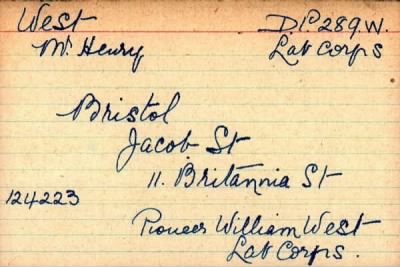 West
D.P. 289.W.
Mr. Henry
Lab Corps
Bristol
Jacob St
11. Britannia St
124223
Pioneer William West
Lab Corps.